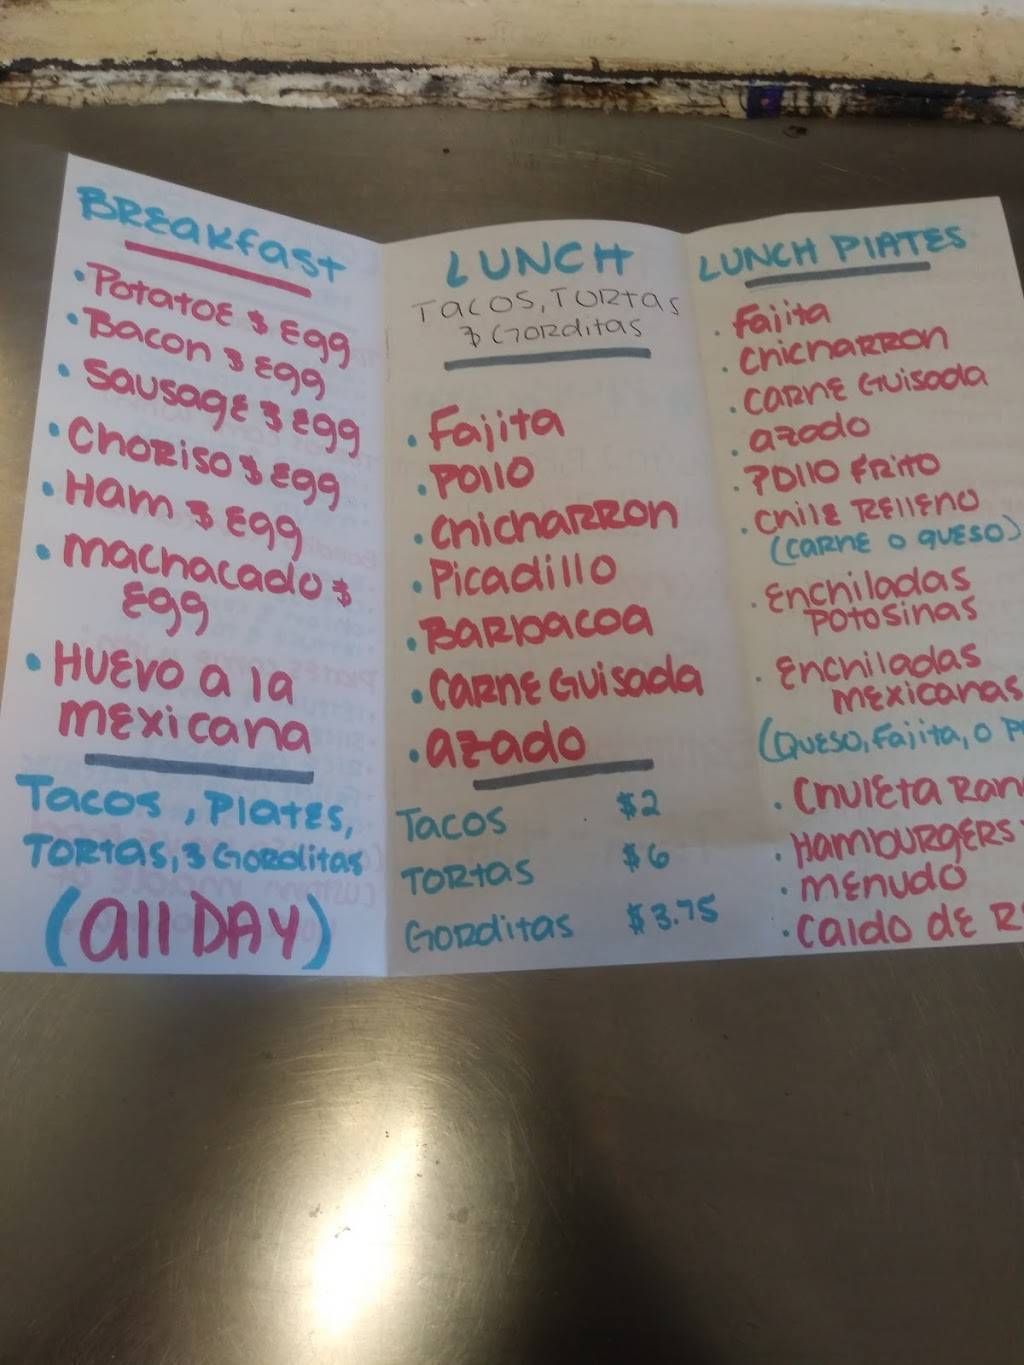 BREAKfast
• Potatoe & Egg
• Bacon & Egg
• Sausage & Egg
• Choriso & Egg
• Ham & Egg
• Machacado &
Egg
• Huevo a la
Mexicana
Tacos, Plates,
Tortas, & Gorditas
(all DAY)
LUNCH
Tacos, Tortas
& Gorditas
• Fajita
• Pollo
• Chicharron
• Picadillo
• Barbacoa
• Carne Guisada
• azado
Tacos $2
Tortas $6
Gorditas $3.75
LUNCH PlATES
• Fajita
• Chicharron
• Carne Guisada
• azado
• Pollo Frito
• Chile Relleno
(Carne o queso)
• Enchiladas
Potosinas
• Enchiladas
Mexicanas
(Queso, Fajita, o
• Chuleta
• Hamburgers
• Menudo
• Caldo de